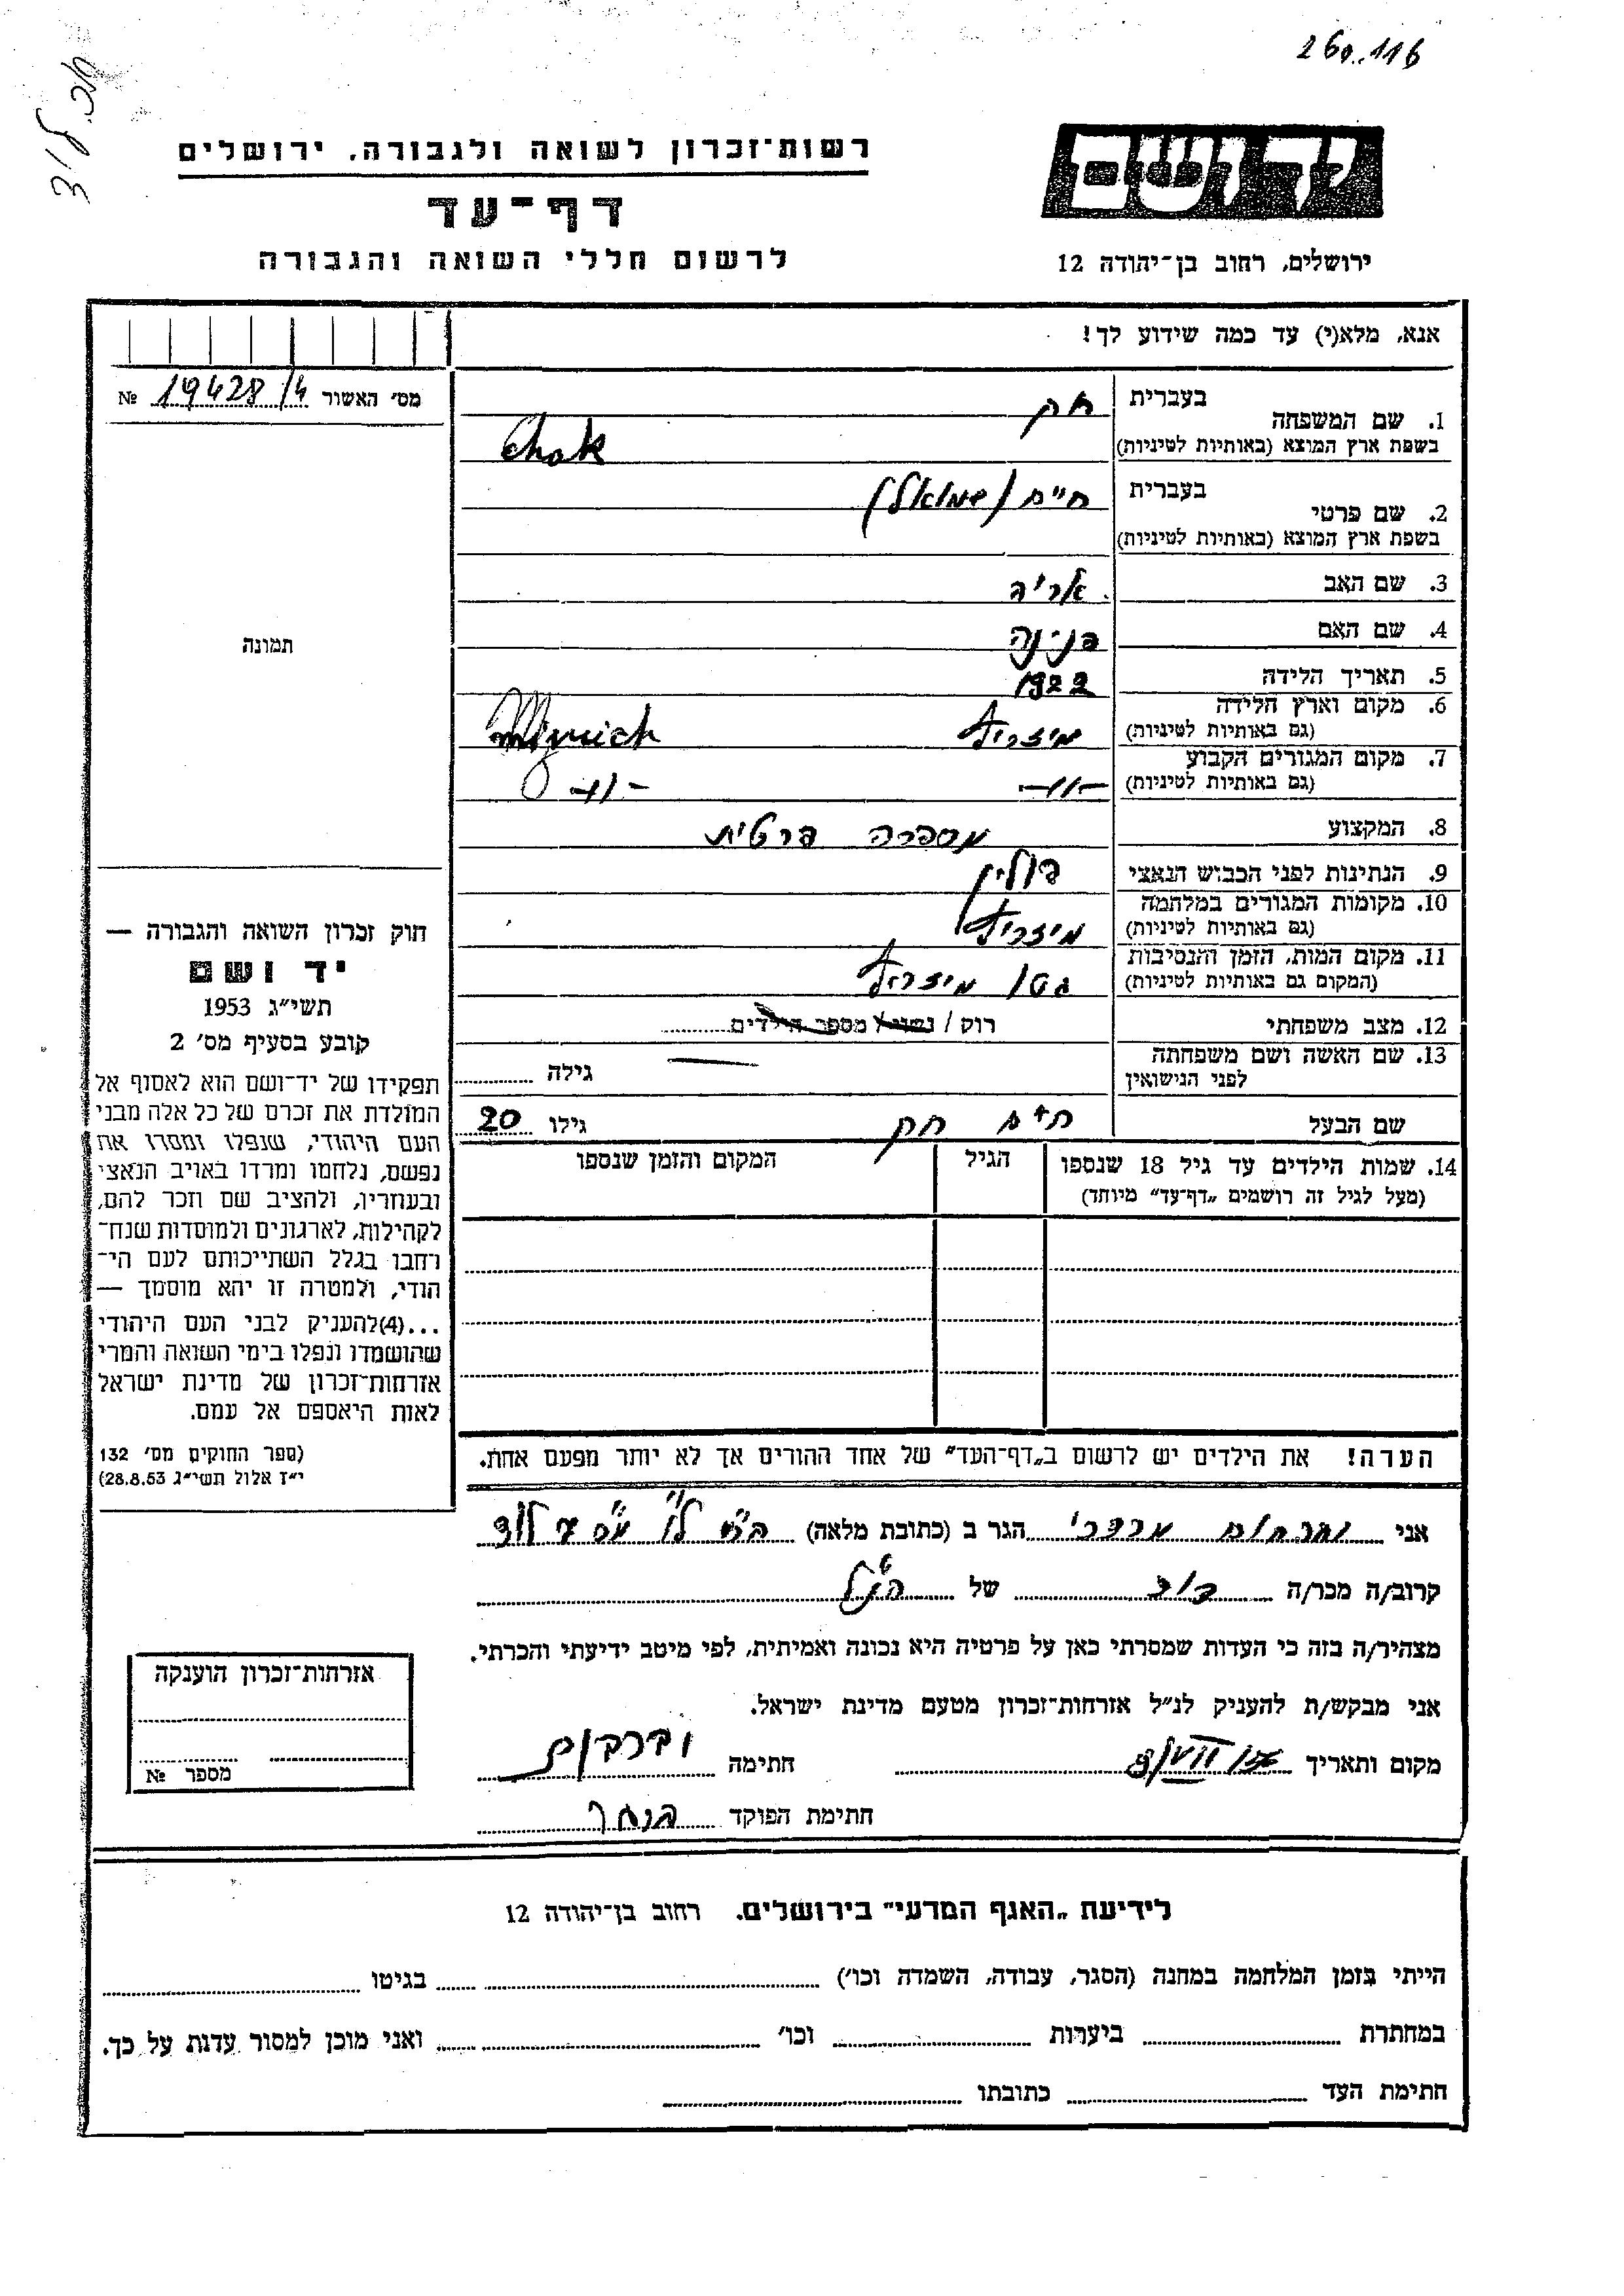 260.116
רשות־זכרון לשואה ולגבורה, ירושלים
יד ושם
דף־עד
לרשום חללי השואה והגבורה
ירושלים, רחוב בן־יהודה 12
אנא, מלא(י) עד כמה שידוע לך!
מס׳ האשור 19428/4 №
1. שם המשפחה
בעברית חק
בשפת ארץ המוצא (באותיות לטיניות) Chak
2. שם פרטי
בעברית חיים (שמואל)
בשפת ארץ המוצא (באותיות לטיניות)
3. שם האב אריה
4. שם האם פנינה
5. תאריך הלידה 1922
6. מקום וארץ הלידה מיזריץ
(גם באותיות לטיניות)
7. מקום המגורים הקבוע -"-
(גם באותיות לטיניות) -"-
8. המקצוע מספרה פרטית
9. הנתינות לפני הכבוש הנאצי פולין
10. מקומות המגורים במלחמה מיזריץ
(גם באותיות לטיניות)
11. מקום המות, הזמן והנסיבות גטו מיזריץ
(המקום גם באותיות לטיניות)
12. מצב משפחתי רוק / נשוי / מספר הילדים
13. שם האשה ושם משפחתה
לפני הנישואין
גילה
שם הבעל חיים חק גילו 20
14. שמות הילדים עד גיל 18 שנספו
(מעל לגיל זה רושמים „דף־עד״ מיוחד)
הגיל
המקום והזמן שנספו
תמונה
חוק זכרון השואה והגבורה —
יד ושם
תשי״ג 1953
קובע בסעיף מס׳ 2
תפקידו של יד־ושם הוא לאסוף אל
המולדת את זכרם של כל אלה מבני
העם היהודי, שנפלו ומסרו את
נפשם, נלחמו ומרדו באויב הנאצי
ובעוזריו, ולהציב שם וזכר להם,
לקהילות, לארגונים ולמוסדות שנח־
רחבו בגלל השתייכותם לעם הי־
הודי, ולמטרה זו יהא מוסמך —
...(4)להעניק לבני העם היהודי
שהושמדו ונפלו בימי השואה והמרי
אזרחות־זכרון של מדינת ישראל
לאות היאספם אל עמם.
(ספר החוקים מס׳ 132
י״ז אלול תשי״ג 28.8.53)
הערה! את הילדים יש לרשום ב„דף־העד״ של אחד ההורים אך לא יותר מפעם אחת.
אני מרדכי הגר ב (כתובת מלאה) לוד
קרוב/ה מכר/ה של הנ״ל
מצהיר/ה בזה כי העדות שמסרתי כאן על פרטיה היא נכונה ואמיתית, לפי מיטב ידיעתי והכרתי.
אני מבקש/ת להעניק לנ״ל אזרחות־זכרון מטעם מדינת ישראל.
מקום ותאריך חתימה
חתימת הפוקד
אזרחות־זכרון הוענקה
מספר №
לידיעת „האגף המדעי״ בירושלים. רחוב בן־יהודה 12
הייתי בזמן המלחמה במחנה (הסגר, עבודה, השמדה וכו׳) בגיטו
במחתרת ביערות וכו׳ ואני מוכן למסור עדות על כך.
חתימת העד כתובתו